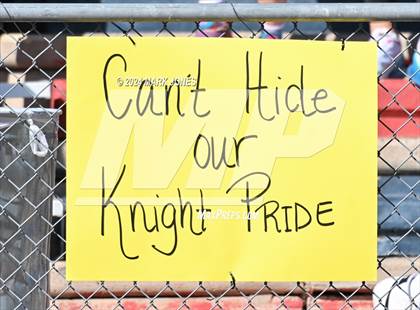 © 2024 MARK JONES
Can't Hide
our
Knight PRIDE
MP
MAXPREPS.COM